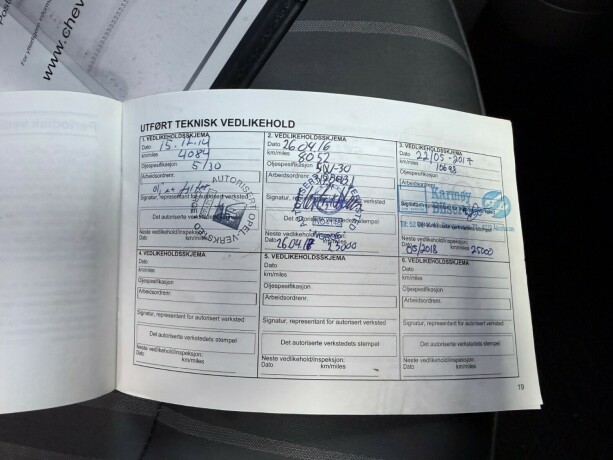 www.chev
UTFØRT TEKNISK VEDLIKEHOLD
1. VEDLIKEHOLDSSKJEMA
Dato 15.12.14
km/miles 4084
Oljespesifikasjon 5/30
Arbeidsordrenr.
Signatur, representant for autorisert verksted
Det autoriserte verkstedets stempel
AUTORISERT OPEL VERKSTED
Neste vedlikehold/inspeksjon:
Dato km/miles
2. VEDLIKEHOLDSSKJEMA
Dato 26.04.16
km/miles 8052
Oljespesifikasjon 5W-30
Arbeidsordrenr.
Signatur, representant for autorisert verksted
Det autoriserte verkstedets stempel
Neste vedlikehold/inspeksjon:
Dato 26.04.18 km/miles 23000
3. VEDLIKEHOLDSSKJEMA
Dato 22/05-2017
km/miles 10698
Oljespesifikasjon
Arbeidsordrenr.
Karmøy
Signatur
Neste vedlikehold/inspeksjon:
Dato 05/2018 km/miles 25000
4. VEDLIKEHOLDSSKJEMA
Dato
km/miles
Oljespesifikasjon
Arbeidsordrenr.
Signatur, representant for autorisert verksted
Det autoriserte verkstedets stempel
Neste vedlikehold/inspeksjon:
Dato km/miles
5. VEDLIKEHOLDSSKJEMA
Dato
km/miles
Oljespesifikasjon
Arbeidsordrenr.
Signatur, representant for autorisert verksted
Det autoriserte verkstedets stempel
Neste vedlikehold/inspeksjon:
Dato km/miles
6. VEDLIKEHOLDSSKJEMA
Dato
km/miles
Oljespesifikasjon
Arbeidsordrenr.
Signatur, representant for autorisert verksted
Det autoriserte verkstedets stempel
Neste vedlikehold/inspeksjon:
Dato km/miles
19